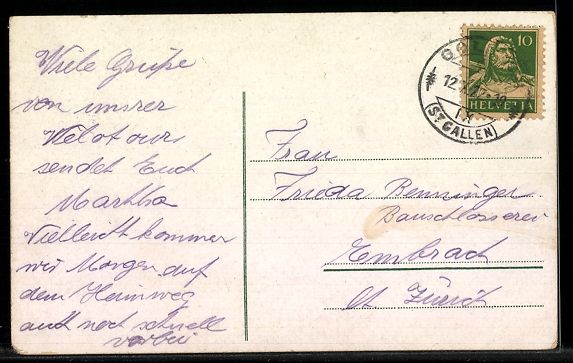 Viele Grüße
von unsrer
Velotour
sendet Euch
Martha
Vielleicht kommen
wir Morgen auf
dem Heimweg
auch noch schnell
vorbei
10
HELVETIA
(ST GALLEN)
Frau
Frieda Benninger
Bauschlosserei
Embrach
Ct. Zürich